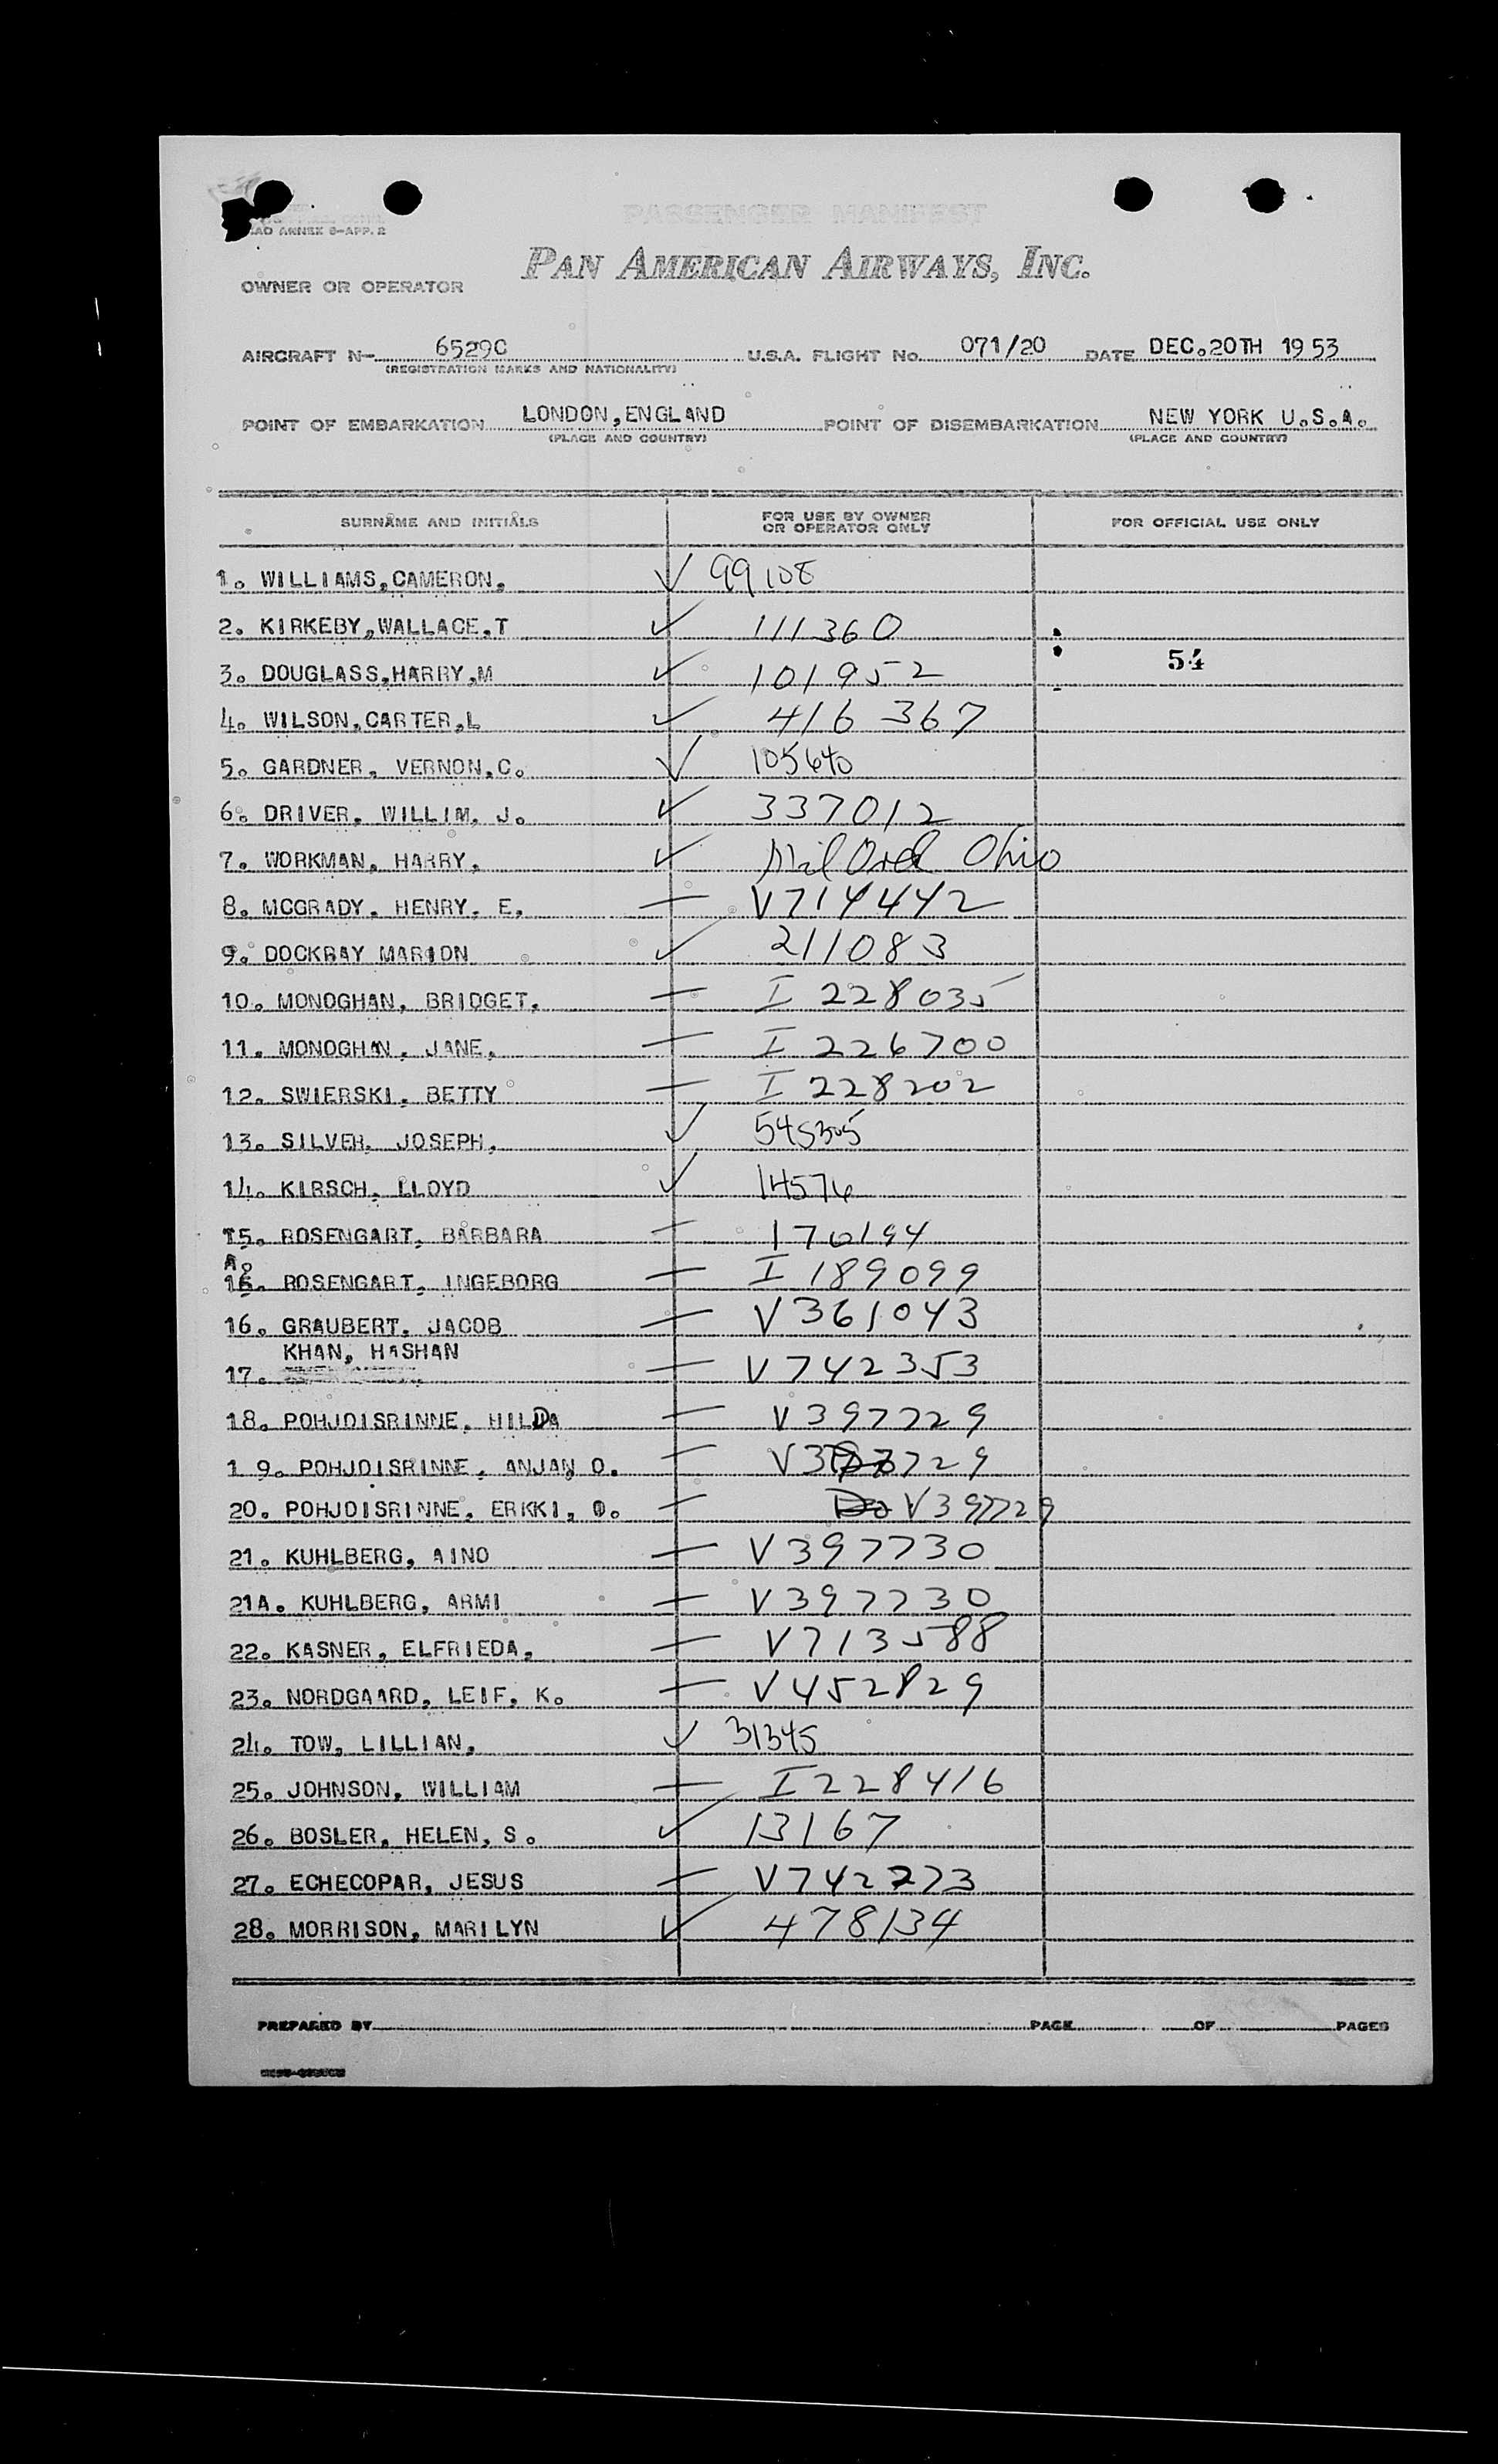 PASSENGER MANIFEST
ICAO ANNEX 9-APP. 2
PAN AMERICAN AIRWAYS, INC.
OWNER OR OPERATOR
AIRCRAFT N- 6529C U.S.A. FLIGHT No. 071/20 DATE DEC.20TH 1953
(REGISTRATION MARKS AND NATIONALITY)
POINT OF EMBARKATION LONDON,ENGLAND POINT OF DISEMBARKATION NEW YORK U.S.A.
(PLACE AND COUNTRY) (PLACE AND COUNTRY)
SURNAME AND INITIALS FOR USE BY OWNER OR OPERATOR ONLY FOR OFFICIAL USE ONLY
1. WILLIAMS,CAMERON. ✓ 99108
2. KIRKEBY,WALLACE.T ✓ 111360
54
3. DOUGLASS,HARRY.M ✓ 101952
4. WILSON,CARTER,L ✓ 416 367
5. GARDNER, VERNON,C. ✓ 105640
6. DRIVER, WILLIM, J. ✓ 337012
7. WORKMAN, HARRY, ✓ Mil Ord Ohio
8. MCGRADY, HENRY, E. — V714442
9. DOCKRAY MARION ✓ 211083
10. MONOGHAN, BRIDGET, — I 228035
11. MONOGHAN, JANE, — I 226700
12. SWIERSKI, BETTY — I 228202
13. SILVER, JOSEPH, ✓ 545305
14. KIRSCH, LLOYD ✓ 14576
15. ROSENGART, BARBARA — 170194
A.
15. ROSENGART, INGEBORG — I 189099
16. GRAUBERT, JACOB — V361043
KHAN, HASHAN
17. — V742353
18. POHJOISRINNE, HILDA — V397729
19. POHJOISRINNE, ANJAN O. — V397729
20. POHJOISRINNE, ERKKI, O. — Do V397729
21. KUHLBERG, AINO — V397730
21A. KUHLBERG, ARMI — V397730
22. KASNER, ELFRIEDA, — V713588
23. NORDGAARD, LEIF, K. — V452829
24. TOW, LILLIAN, ✓ 31345
25. JOHNSON, WILLIAM — I228416
26. BOSLER, HELEN, S. ✓ 13167
27. ECHECOPAR, JESUS — V742273
28. MORRISON, MARILYN ✓ 478134
PREPARED BY PAGE OF PAGES